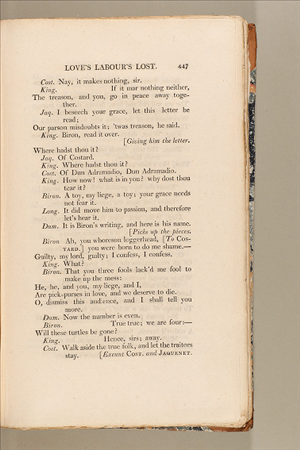 LOVE'S LABOUR'S LOST. 447
Cost. Nay, it makes nothing, sir.
King. If it mar nothing neither,
The treason, and you, go in peace away toge-
ther.
Jaq. I beseech your grace, let this letter be
read;
Our parson misdoubts it; 'twas treason, he said.
King. Biron, read it over.
[Giving him the letter.
Where hadst thou it?
Jaq. Of Costard.
King. Where hadst thou it?
Cost. Of Dun Adramadio, Dun Adramadio.
King. How now! what is in you? why dost thou
tear it?
Biron. A toy, my liege, a toy; your grace needs
not fear it.
Long. It did move him to passion, and therefore
let's hear it.
Dum. It is Biron's writing, and here is his name.
[Picks up the pieces.
Biron Ah, you whoreson loggerhead, [To Cos-
TARD.] you were born to do me shame.—
Guilty, my lord, guilty; I confess, I confess.
King. What?
Biron. That you three fools lack'd me fool to
make up the mess:
He, he, and you, my liege, and I,
Are pick-purses in love, and we deserve to die.
O, dismiss this audience, and I shall tell you
more.
Dum. Now the number is even.
Biron. True true; we are four:—
Will these turtles be gone?
King. Hence, sirs; away.
Cost. Walk aside the true folk, and let the traitors
stay. [Exeunt COST. and JAQUENET.